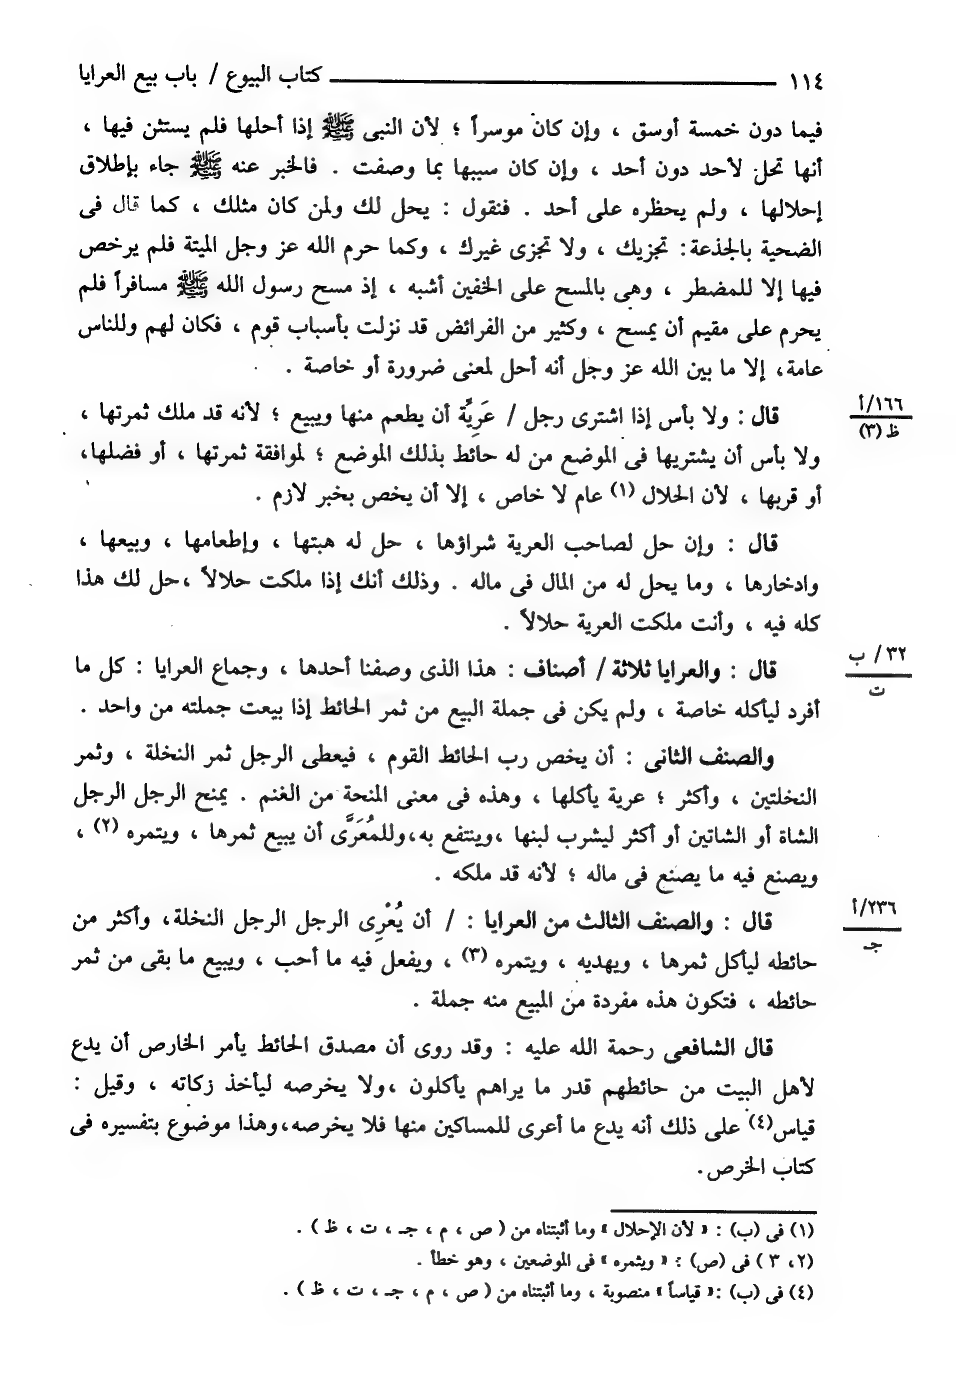 ١١٤ ــــــــــــــــــــ كتاب البيوع / باب بيع العرايا
فيما دون خمسة أوسق ، وإن كان موسراً ؛ لأن النبى ﷺ إذا أحلها فلم يستثن فيها ،
أنها تحل لأحد دون أحد ، وإن كان سببها بما وصفت . فالخبر عنه ﷺ جاء بإطلاق
إحلالها ، ولم يحظره على أحد . فنقول : يحل لك ولمن كان مثلك ، كما قال فى
الضحية بالجذعة : تجزيك ، ولا تجزى غيرك ، وكما حرم الله عز وجل الميتة فلم يرخص
فيها إلا للمضطر ، وهى بالمسح على الخفين أشبه ، إذ مسح رسول الله ﷺ مسافراً فلم
يحرم على مقيم أن يمسح ، وكثير من الفرائض قد نزلت بأسباب قوم ، فكان لهم وللناس
عامة، إلا ما بين الله عز وجل أنه أحل لمعنى ضرورة أو خاصة .
١٦٦/أ
ظ (٣)
قال : ولا بأس إذا اشترى رجل / عَرِيَّة أن يطعم منها ويبيع ؛ لأنه قد ملك ثمرتها ،
ولا بأس أن يشتريها فى الموضع من له حائط بذلك الموضع ؛ لموافقة ثمرتها ، أو فضلها،
أو قربها ، لأن الحلال (١) عام لا خاص ، إلا أن يخص بخبر لازم .
قال : وإن حل لصاحب العرية شراؤها ، حل له هبتها ، وإطعامها ، وبيعها ،
وادخارها ، وما يحل له من المال فى ماله . وذلك أنك إذا ملكت حلالاً ،حل لك هذا
كله فيه ، وأنت ملكت العرية حلالاً .
٣٢/ ب
ت
قال : والعرايا ثلاثة / أصناف : هذا الذى وصفنا أحدها ، وجماع العرايا : كل ما
أفرد ليأكله خاصة ، ولم يكن فى جملة البيع من ثمر الحائط إذا بيعت جملته من واحد .
والصنف الثانى : أن يخص رب الحائط القوم ، فيعطى الرجل ثمر النخلة ، وثمر
النخلتين ، وأكثر ؛ عرية يأكلها ، وهذه فى معنى المنحة من الغنم . يمنح الرجل الرجل
الشاة أو الشاتين أو أكثر ليشرب لبنها ،وينتفع به،وللمُعَرَّى أن يبيع ثمرها ، ويتمره (٢) ،
ويصنع فيه ما يصنع فى ماله ؛ لأنه قد ملكه .
٢٣٦/أ
جـ
قال : والصنف الثالث من العرايا : / أن يُعْرِى الرجل الرجل النخلة، وأكثر من
حائطه ليأكل ثمرها ، ويهديه ، ويتمره (٣) ، ويفعل فيه ما أحب ، ويبيع ما بقى من ثمر
حائطه ، فتكون هذه مفردة من المبيع منه جملة .
قال الشافعى رحمة الله عليه : وقد روى أن مصدق الحائط يأمر الخارص أن يدع
لأهل البيت من حائطهم قدر ما يراهم يأكلون ،ولا يخرصه ليأخذ زكاته ، وقيل :
قياس(٤) على ذلك أنه يدع ما أعرى للمساكين منها فلا يخرصه،وهذا موضوع بتفسيره فى
كتاب الخرص.
(١) فى (ب) : « لأن الإحلال » وما أثبتناه من ( ص ، م ، جـ ، ت ، ظ ) .
(٢، ٣ ) فى (ص) : « ويثمره » فى الموضعين ، وهو خطأ .
(٤) فى (ب) :« قياساً » منصوبة ، وما أثبتناه من ( ص ، م ، جـ ، ت ، ظ ) .